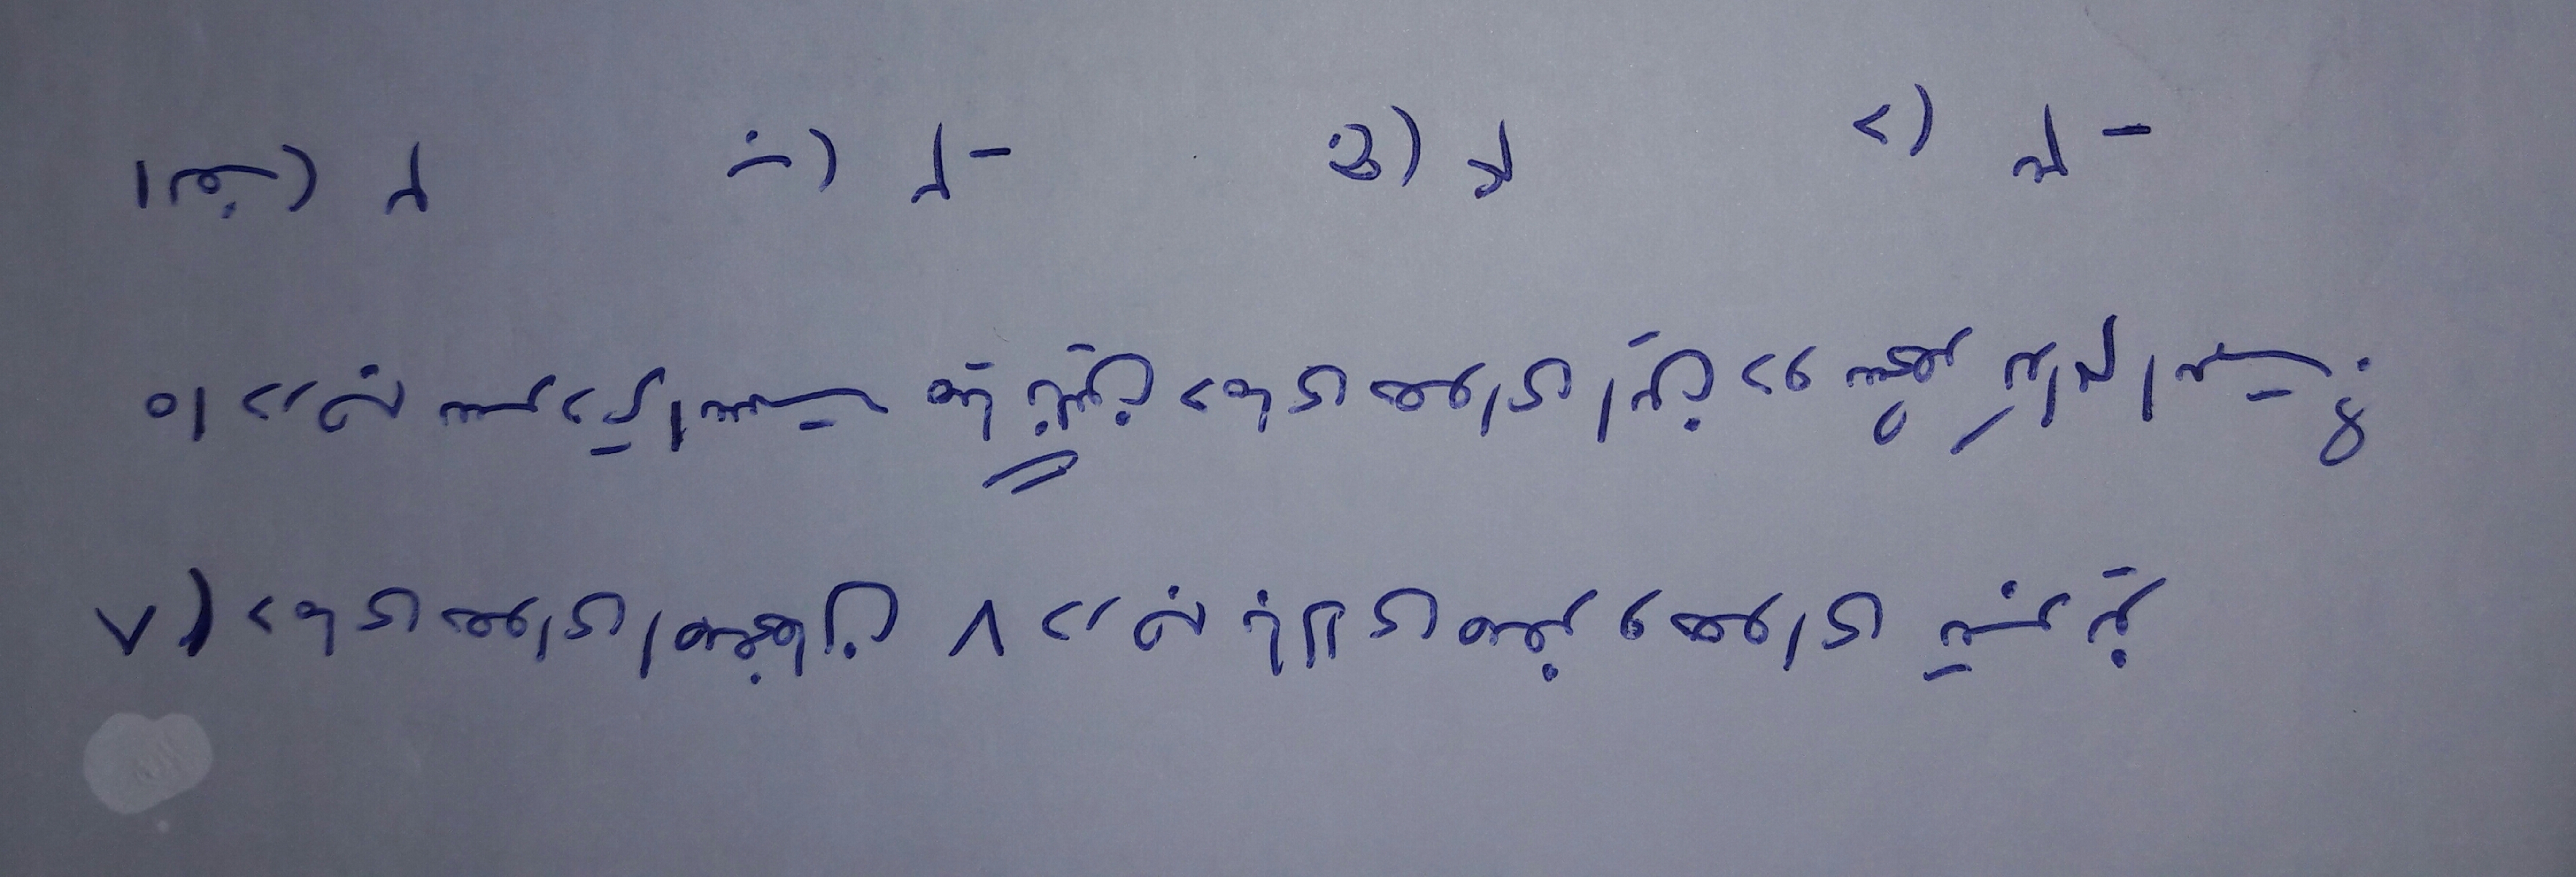 ۸) دمای هوای اصفهان ۷ درجه بالای صفر و هوای تبریز
۱۰ درجه سردتر است میانگین دمای هوای این دو شهر کدام است؟
الف) ۲ ب) ۲- ج) ۴ د) ۳-